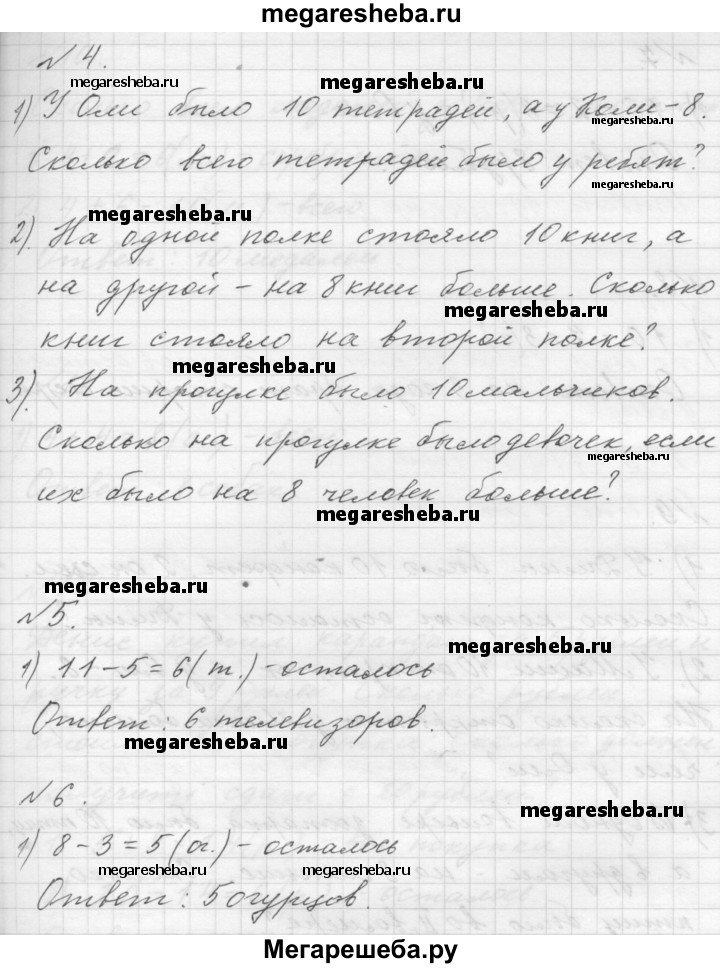 megaresheba.ru
№ 4.
megaresheba.ru
megaresheba.ru
1) У Оли было 10 тетрадей, а у Коли - 8.
megaresheba.ru
Сколько всего тетрадей было у ребят?
megaresheba.ru
megaresheba.ru
2). На одной полке стояло 10 книг, а
на другой - на 8 книг больше. Сколько
megaresheba.ru
книг стояло на второй полке?
megaresheba.ru
3). На прогулке было 10 мальчиков.
Сколько на прогулке было девочек, если
megaresheba.ru
их было на 8 человек больше?
megaresheba.ru
megaresheba.ru
№ 5.
megaresheba.ru
1) 11 - 5 = 6 (т.) - осталось
Ответ: 6 телевизоров.
megaresheba.ru
№ 6.
megaresheba.ru
1) 8 - 3 = 5 (ог.) - осталось
megaresheba.ru
megaresheba.ru
Ответ: 5 огурцов.
Мегарешеба.ру